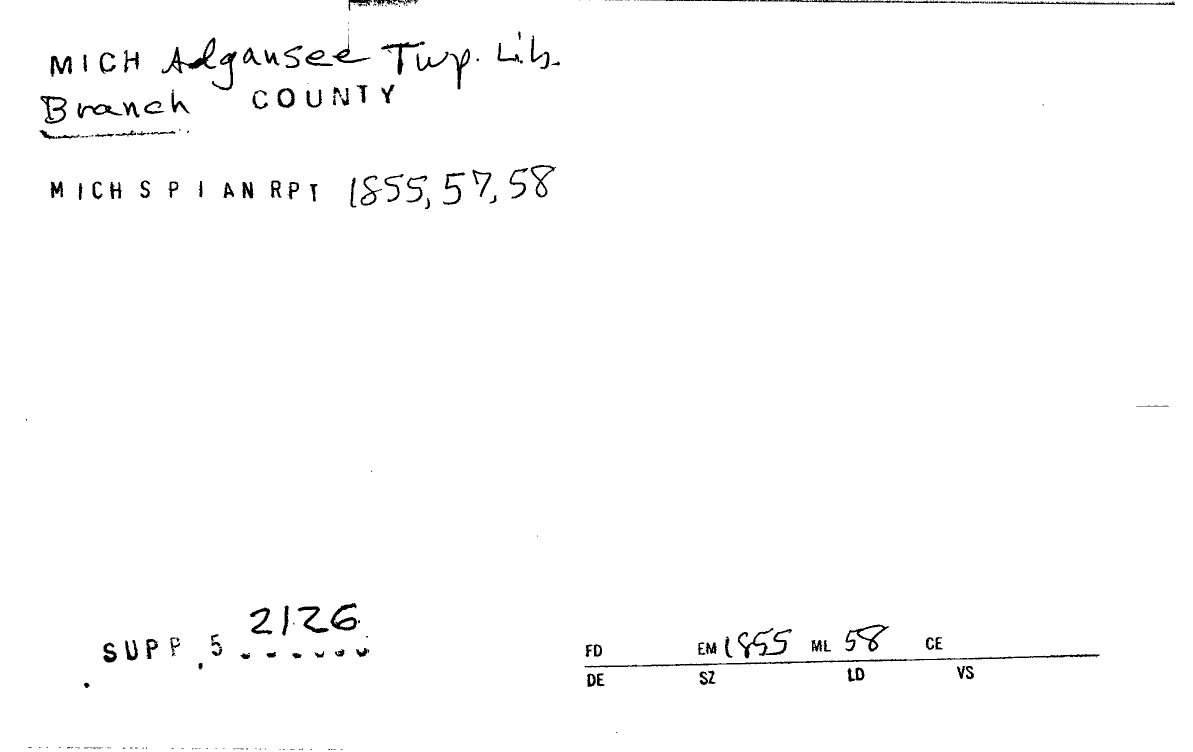 MICH Adgansee Twp. Lib.
Branch COUNTY
MICH S P I AN RPT 1855, 57, 58
2126
SUPP. 5
FD EM 1855 ML 58 CE
DE SZ LD VS